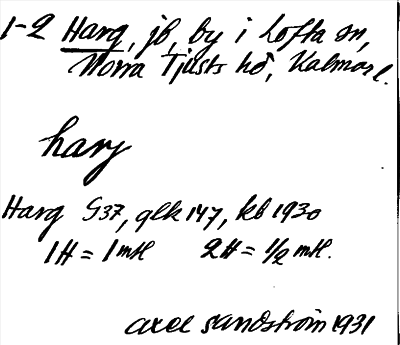 1-2 Harg, jb, by i Lofta sn,
Norra Tjusts hd, Kalmar l.
harj
Harg S37, glk 147, kb 1930
1H = 1 mtl 2H = 1/2 mtl.
Axel Sandström 1931